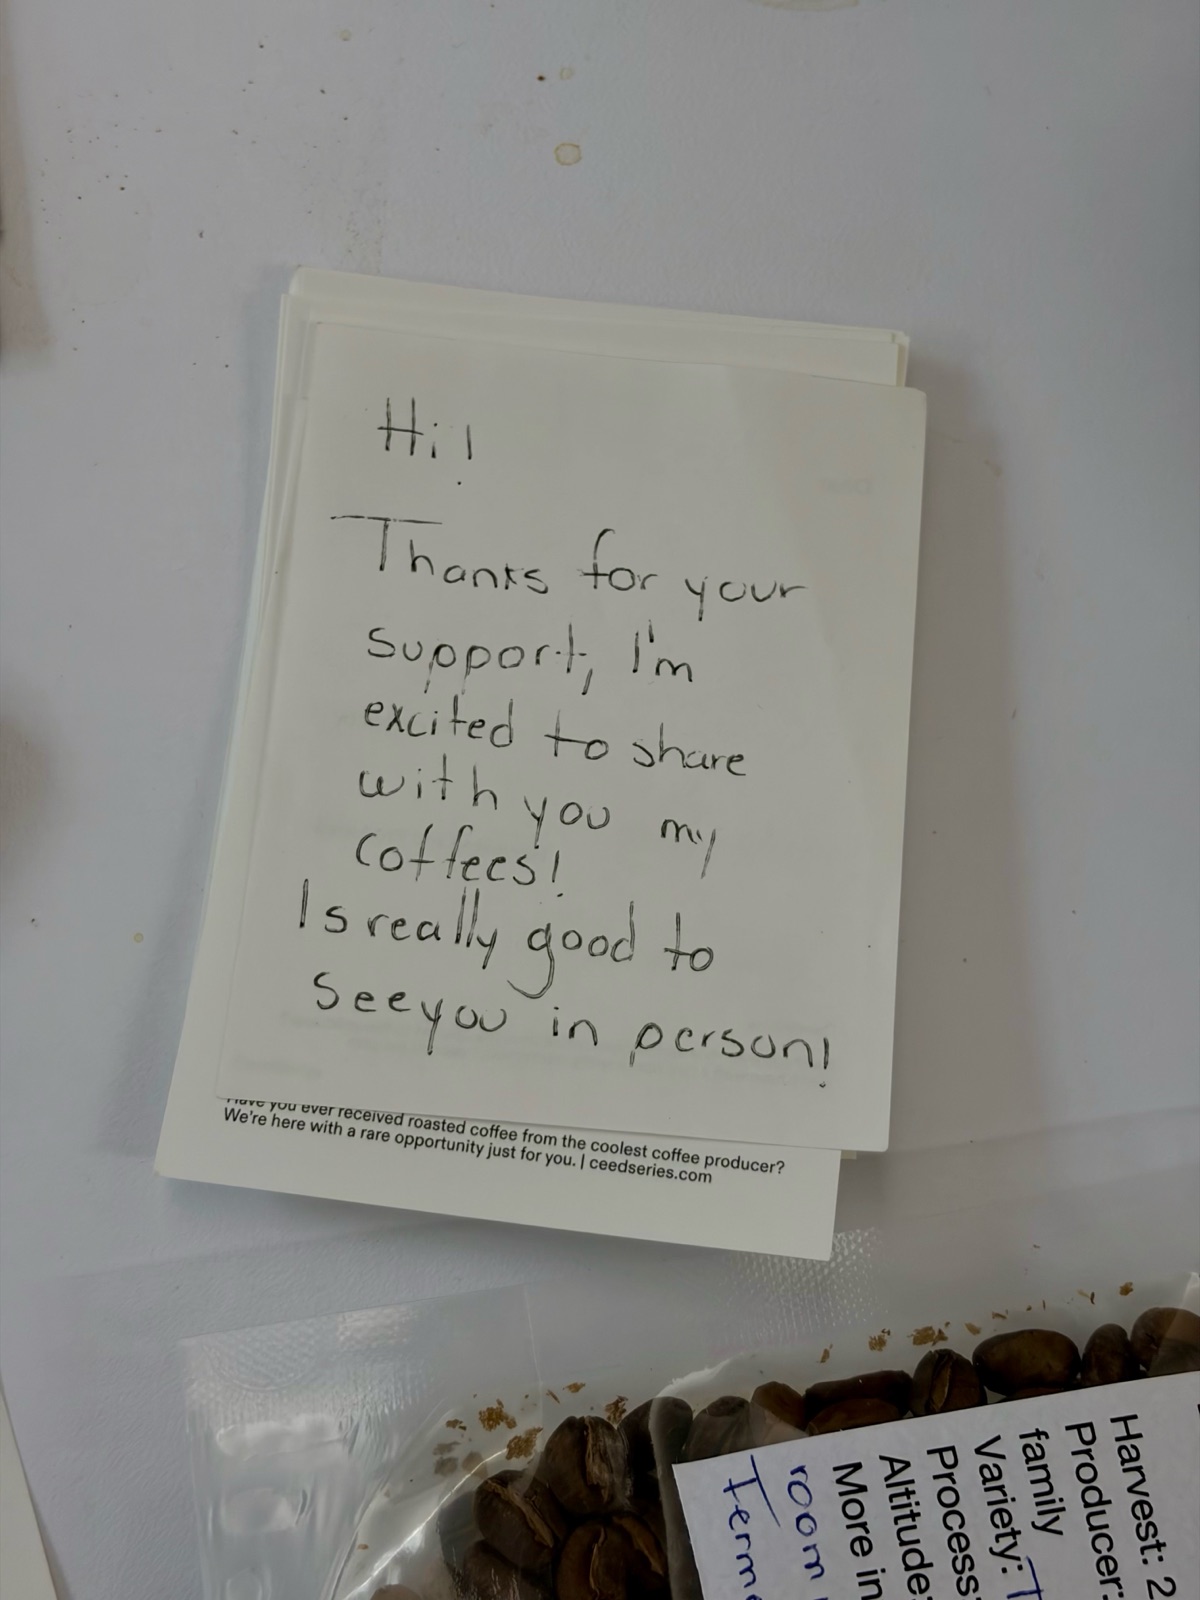 Hi!
Thanks for your
support, I'm
excited to share
with you my
coffees!
Is really good to
see you in person!
Have you ever received roasted coffee from the coolest coffee producer?
We're here with a rare opportunity just for you. | ceedseries.com
Harvest: 2
Producer:
family
Variety: T
Process:
Altitude:
More in
room